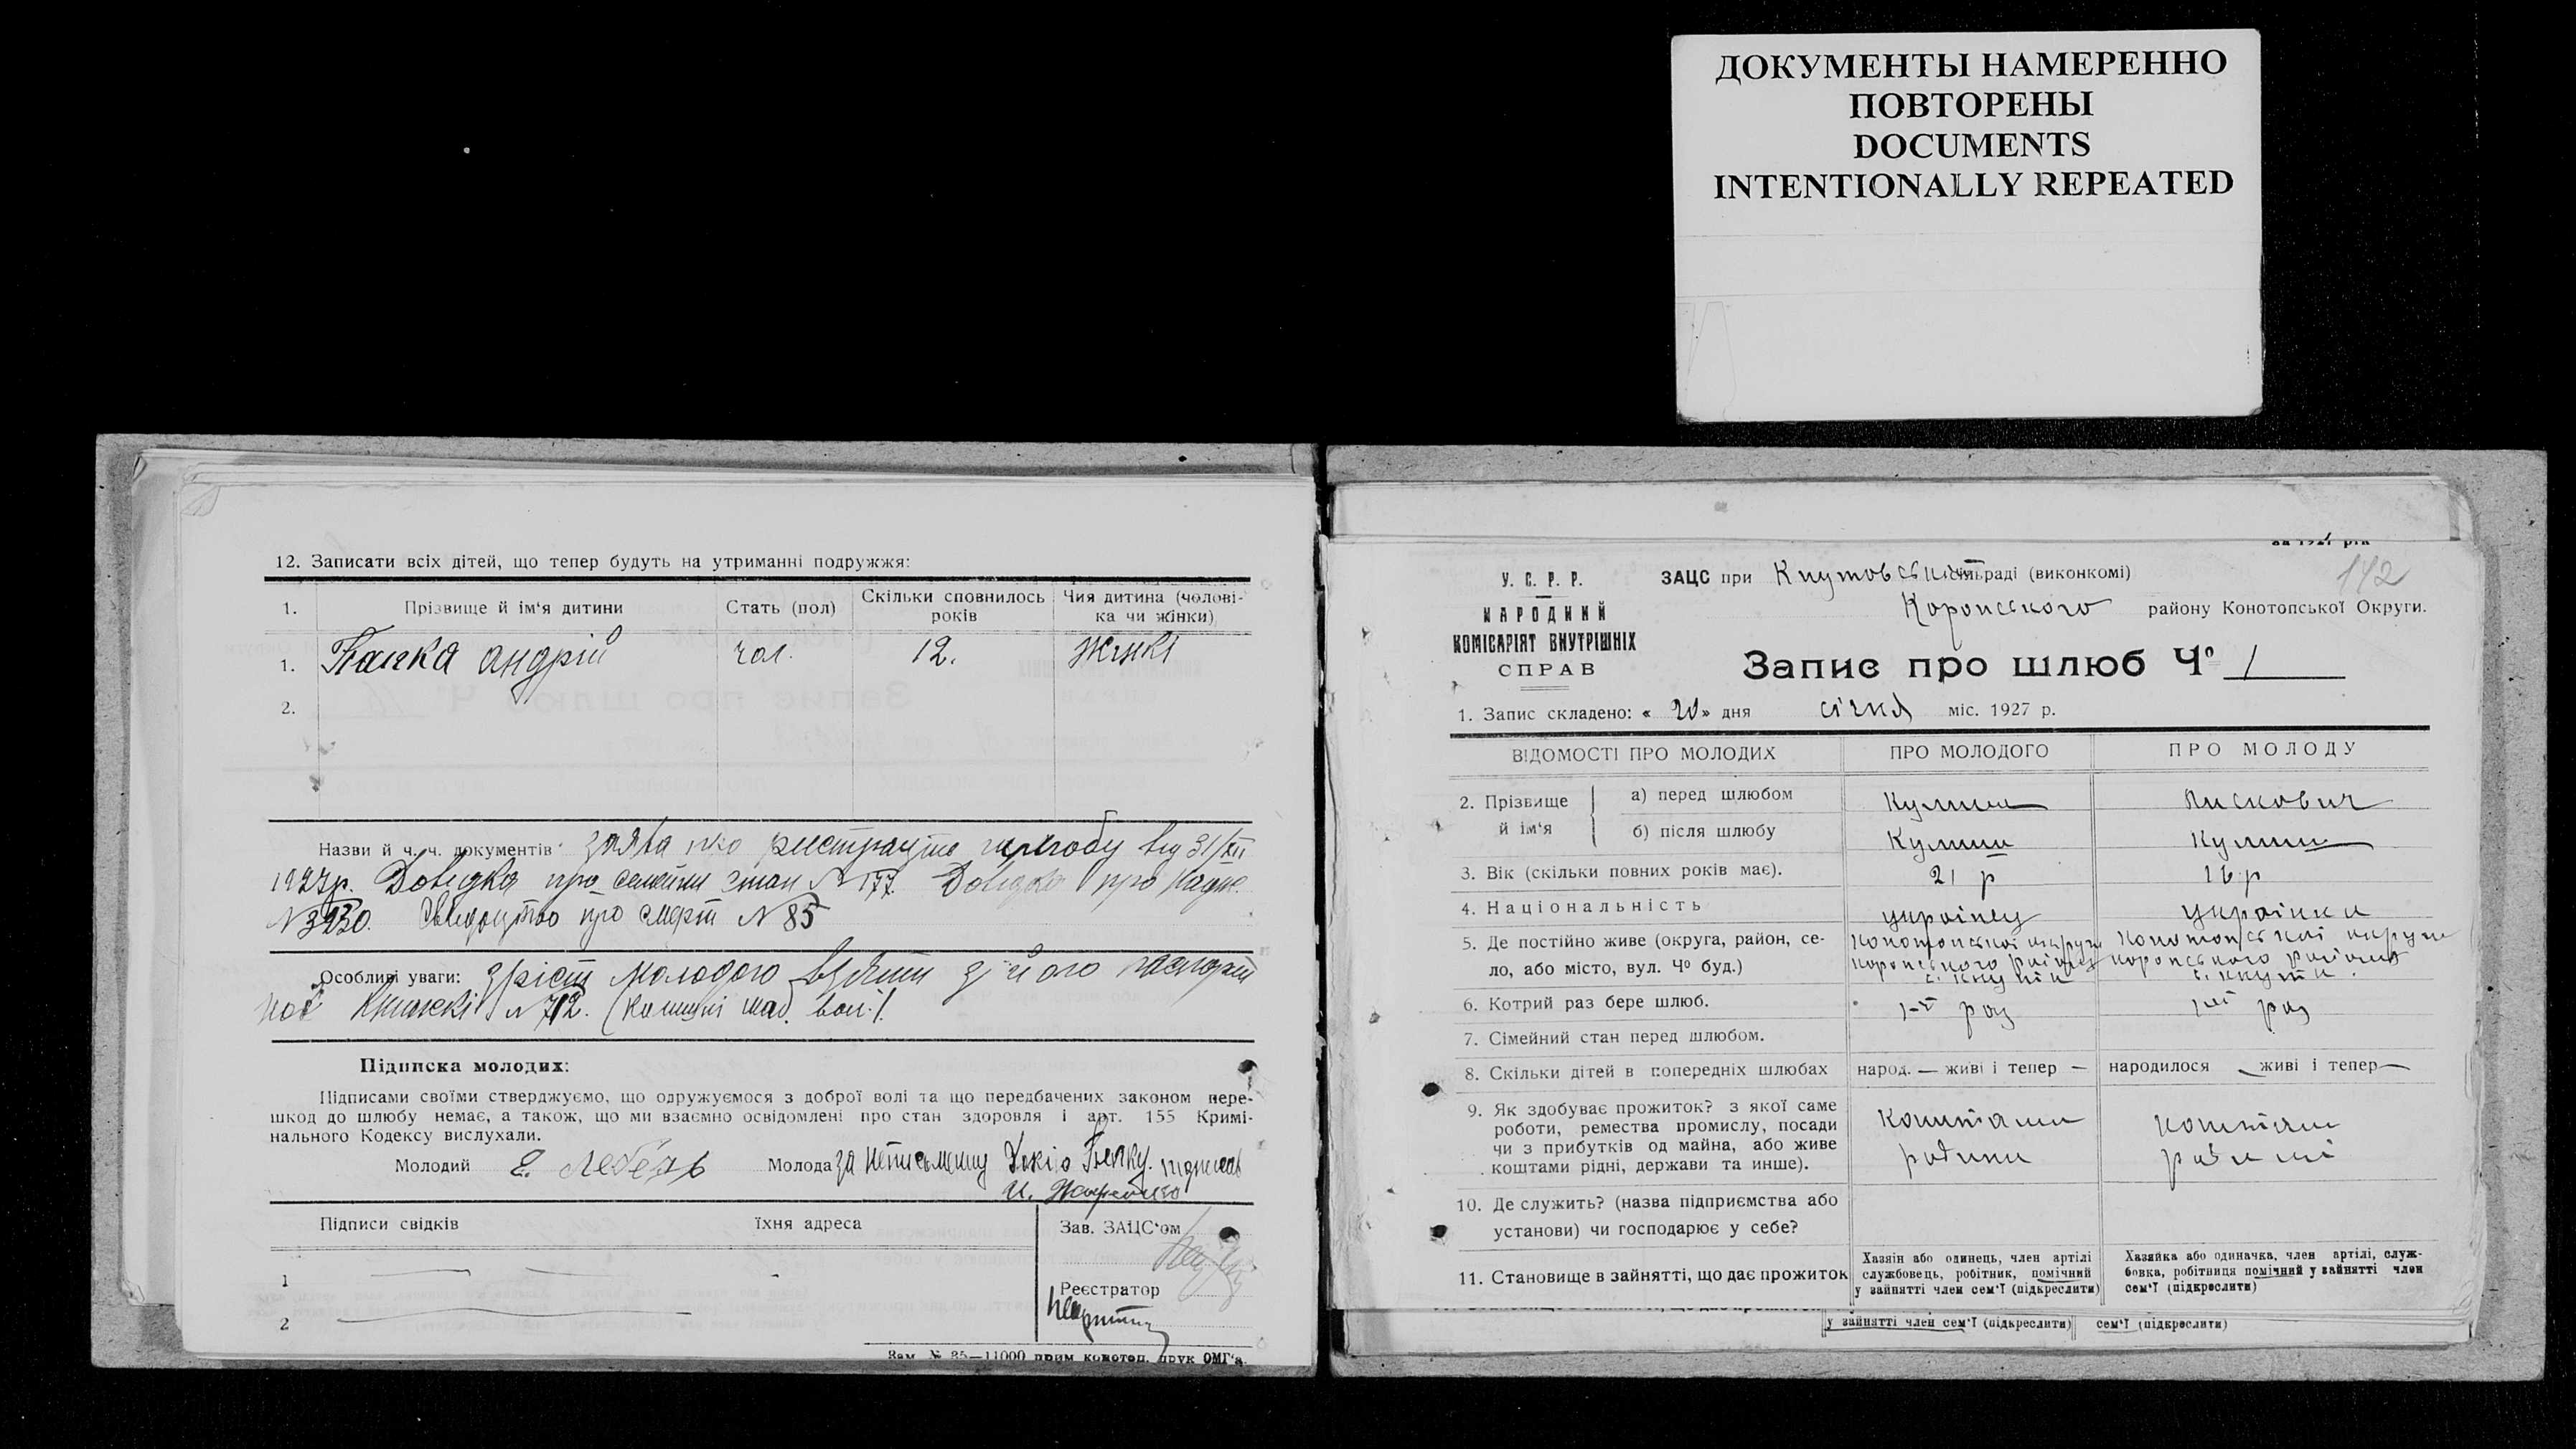 ДОКУМЕНТЫ НАМЕРЕННО
ПОВТОРЕНЫ
DOCUMENTS
INTENTIONALLY REPEATED
12. Записати всіх дітей, що тепер будуть на утриманні подружжя:
1. Прізвище й ім‘я дитини Стать (пол) Скільки сповнилось років Чия дитина (чолові-ка чи жінки)
1. андрій чол. 12. Жінкі
2.
Назви й ч. ч. документів: заява про реєстрацію шлюбу від 31/XII
1927р. Довідка про стан № 177. Довідка про
№ 3930. про смерті № 85
Особливі уваги: зріст молодого взятии з його
книжкі № 712.
Підписка молодих:
Підписами своїми стверджуємо, що одружуємося з доброї волі та що передбачених законом пере-
шкод до шлюбу немає, а також, що ми взаємно освідомлені про стан здоровля і арт. 155 Кримі-
нального Кодексу вислухали.
Молодий Е. Лебедь Молода за неписьменну підписав
И.
Підписи свідків їхня адреса Зав. ЗАЦС‘ом
1
Реєстратор
2
Зам. № 85—11000 прим конотоп. друк ОМГ‘а.
за 1927 рік
142
У. С. Р. Р.
НАРОДНИЙ
КОМІСАРІЯТ ВНУТРІШНІХ
СПРАВ
ЗАЦС при сільраді (виконкомі)
Коропського району Конотопської Округи.
Запис про шлюб Чо 1
1. Запис складено: « 20» дня січня міс. 1927 р.
ВІДОМОСТІ ПРО МОЛОДИХ ПРО МОЛОДОГО ПРО МОЛОДУ
2. Прізвище й ім‘я а) перед шлюбом Кулиш Пискович
б) після шлюбу Кулиш Кулиш
3. Вік (скільки повних років має). 21 р 16 р
4. Національність українец українка
5. Де постійно живе (округа, район, се- Конотопської округи Конотопської округи
ло, або місто, вул. Чо буд.) коропського району коропського району
с. с.
6. Котрий раз бере шлюб. 1-й раз 1-ий раз
7. Сімейний стан перед шлюбом.
8. Скільки дітей в попередніх шлюбах народ. — живі і тепер — народилося — живі і тепер —
9. Як здобуває прожиток? з якої саме
роботи, ремества промислу, посади коштами коштами
чи з прибутків од майна, або живе
коштами рідні, держави та инше). родини
10. Де служить? (назва підприємства або
установи) чи господарює у себе?
11. Становище в зайнятті, що дає прожиток
Хазяїн або одинець, член артілі
службовець, робітник, помічний
у зайнятті член сем‘ї (підкреслити)
Хазяйка або одиначка, член артілі, служ-
бовка, робітниця помічний у зайнятті член
сем‘ї (підкреслити)
у зайнятті член сем‘ї (підкреслити) сем‘ї (підкреслити)